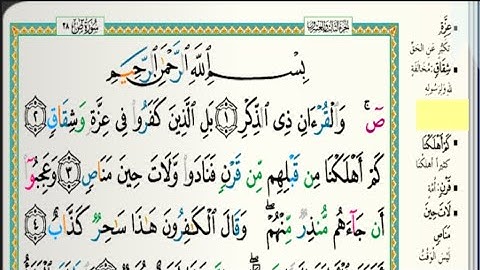 الجزء الثالث والعشرون
سُورَةُ صٓ ٣٨
بِسْمِ ٱللَّهِ ٱلرَّحْمَٰنِ ٱلرَّحِيمِ
صٓۚ وَٱلْقُرْءَانِ ذِى ٱلذِّكْرِ ۝١ بَلِ ٱلَّذِينَ كَفَرُوا۟ فِى عِزَّةٍ وَشِقَاقٍ ۝٢
كَمْ أَهْلَكْنَا مِن قَبْلِهِم مِّن قَرْنٍ فَنَادَوا۟ وَّلَاتَ حِينَ مَنَاصٍ ۝٣ وَعَجِبُوٓا۟
أَن جَآءَهُم مُّنذِرٌ مِّنْهُمْ ۖ وَقَالَ ٱلْكَٰفِرُونَ هَٰذَا سَٰحِرٌ كَذَّابٌ ۝٤
عِزَّةٍ
تكبُّر عن الحقِّ
شِقَاقٍ: مخالفة
لله ولرسوله
كَمْ أَهْلَكْنَا
كثيراً أهلكنا
قَرْنٍ: أمّة
لَاتَ حِينَ
مَنَاصٍ
ليس الوقت